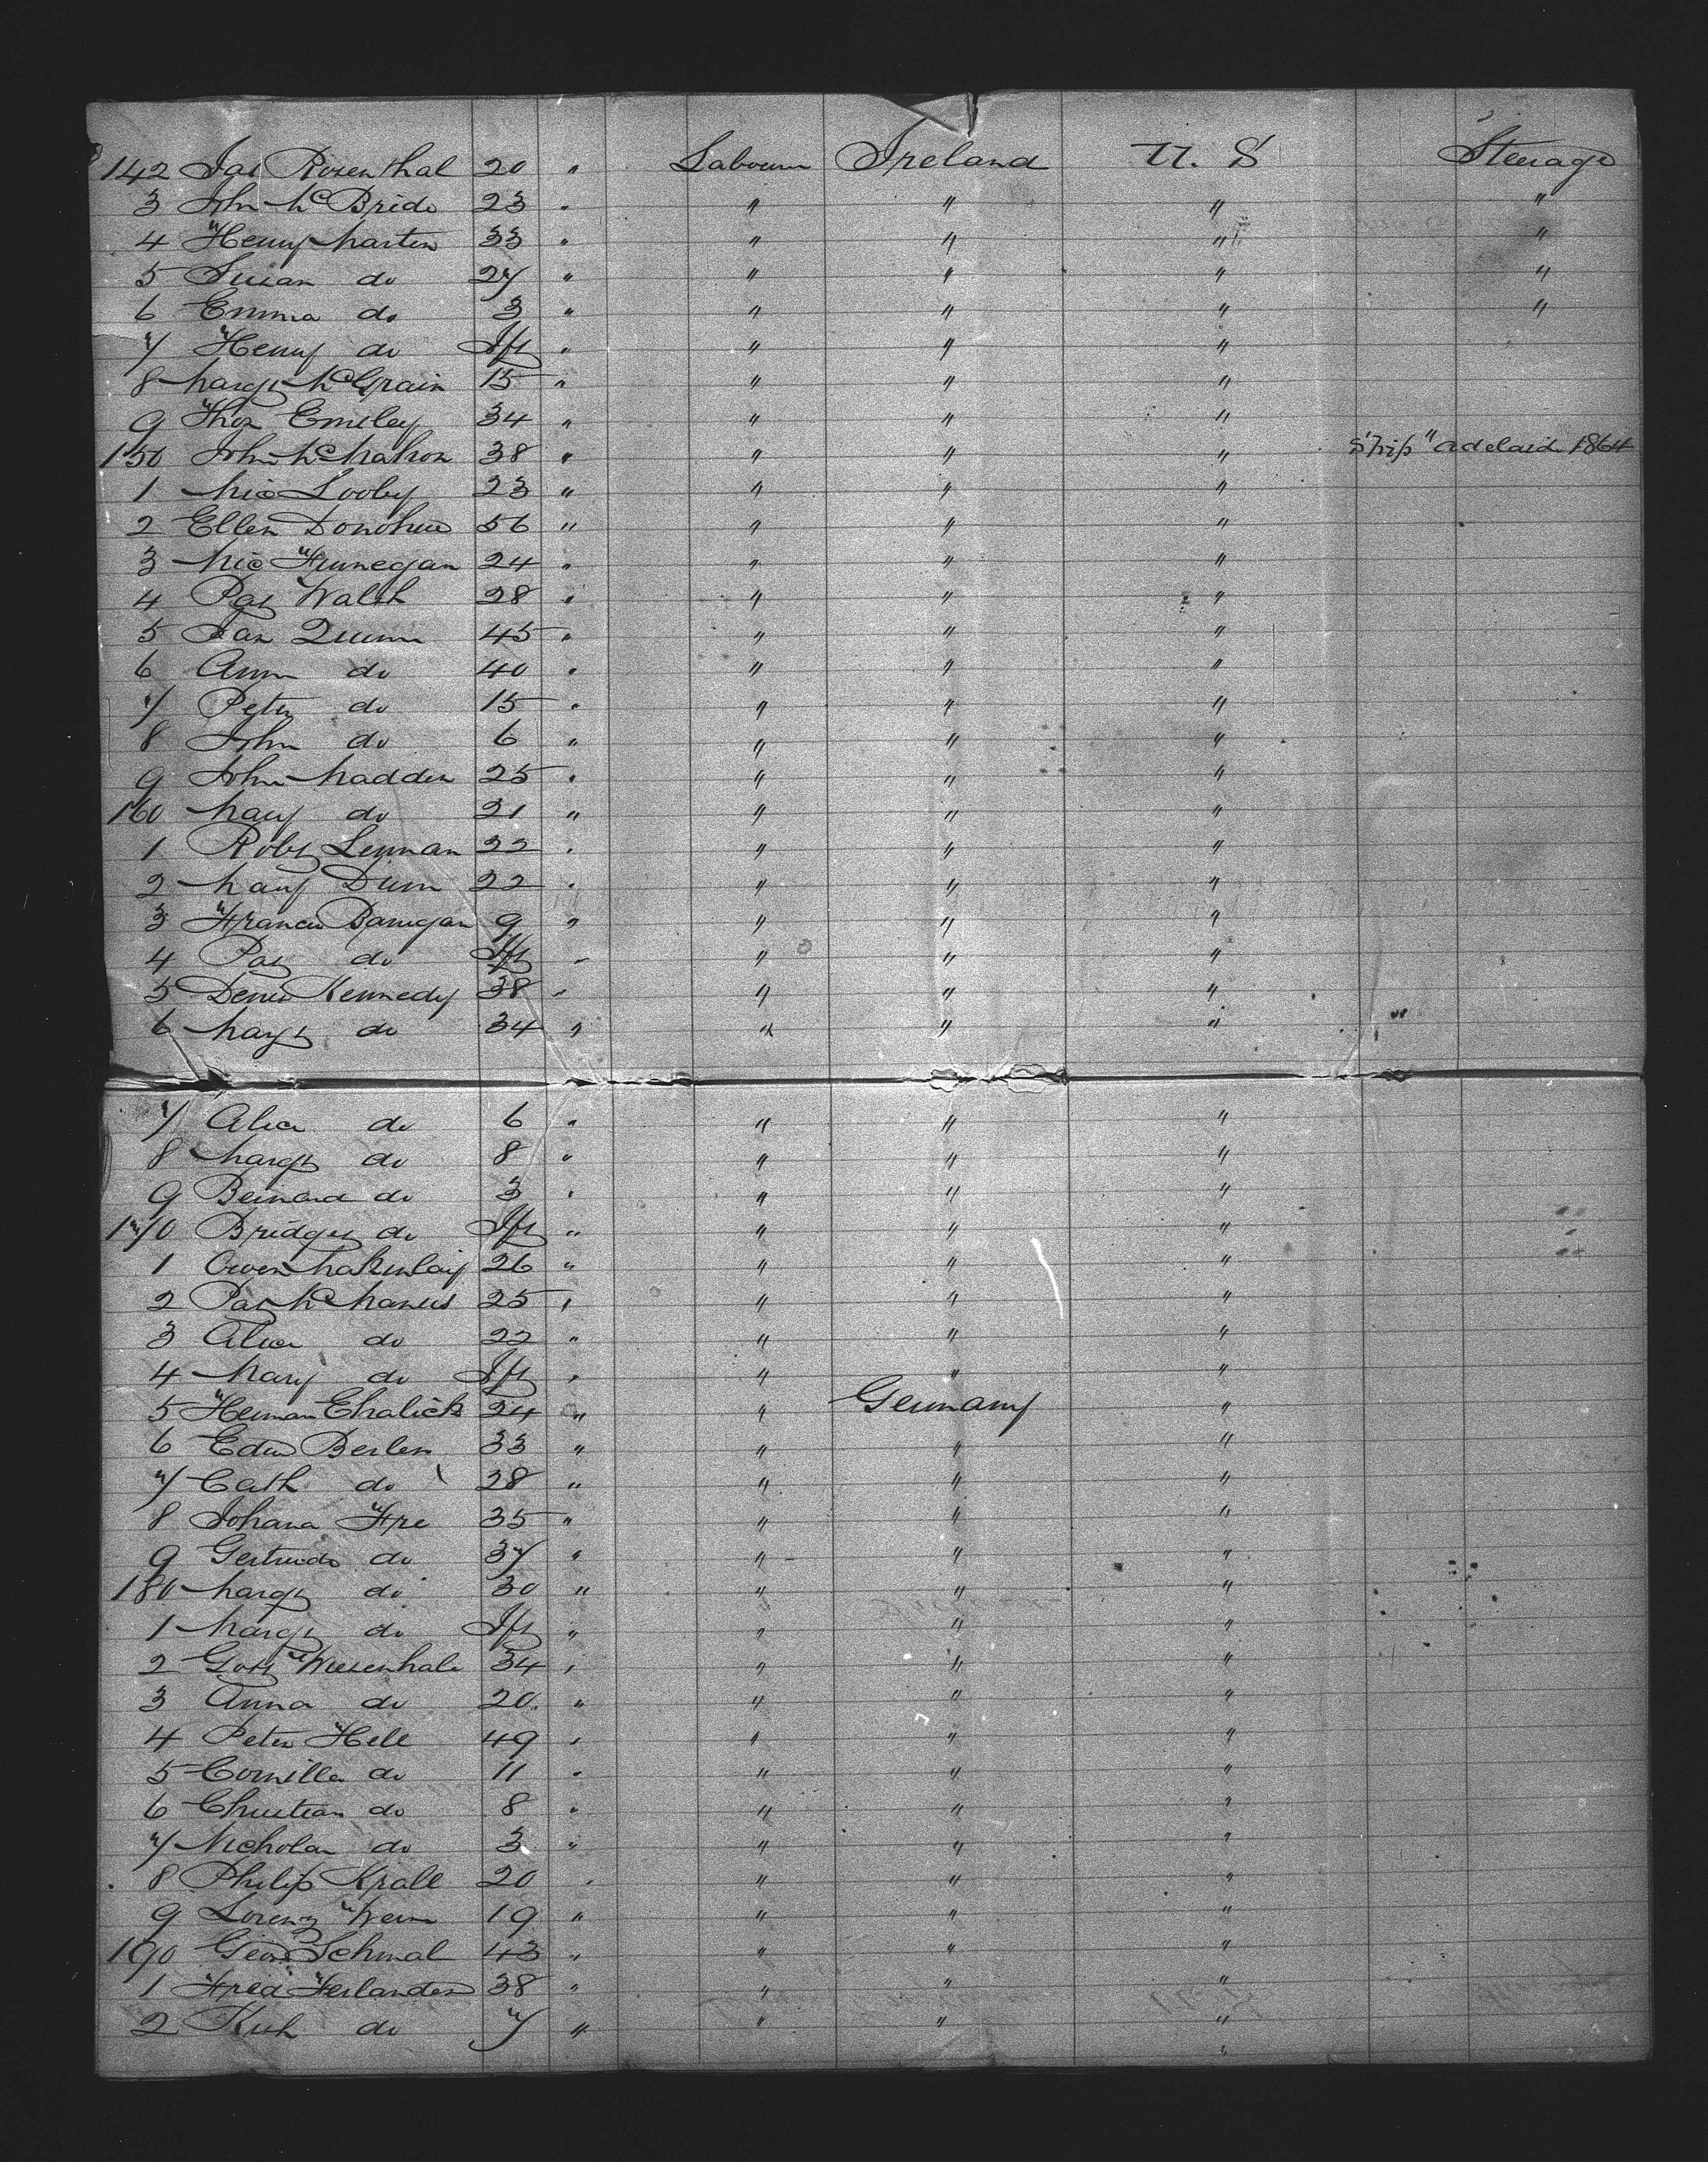 142 Jas Rosenthal 20 " Labourer Ireland U. S Steerage
3 John McBride 23 " " " " "
4 Henry Martin 33 " " " " "
5 Susan do 27 " " " " "
6 Emma do 3 " " " " "
7 Henry do Ift " " " "
8 Margt McGrain 15 " " " "
9 Thos Emeley 34 " " " "
150 John McMahon 38 " " " " Ship "Adelaide 1864
1 Mic Looby 23 " " " "
2 Ellen Donohue 56 " " " "
3 Mic Finnegan 24 " " " "
4 Pat Walsh 28 " " " "
5 Jas Quinn 45 " " " "
6 Ann do 40 " " " "
7 Peter do 15 " " " "
8 John do 6 " " " "
9 John Madden 25 " " " "
160 Mary do 21 " " " "
1 Robt Lennan 22 " " " "
2 Mary Dunn 22 " " " "
3 Francis Banigan 9 " " " "
4 Pat do Ift " " " "
5 Denis Kennedy 38 " " " "
6 Margt do 34 " " " "
7 Alice do 6 " " " "
8 Margt do 8 " " " "
9 Bernard do 3 " " " "
170 Bridget do Ift " " " "
1 Owen 26 " " " "
2 Pat McManus 25 " " " "
3 Alice do 22 " " " "
4 Mary do Ift " " " "
5 Herman Ehalick 24 " " Germany "
6 Edwd Berlen 33 " " " "
7 Cath do 28 " " " "
8 Johana Fre 35 " " " "
9 Gertrude do 37 " " " "
180 Margt do 30 " " " "
1 Margt do Ift " " " "
2 Gott Wiesenhale 34 " " " "
3 Anna do 20 " " " "
4 Peter Hill 49 " " " "
5 Comilla do 11 " " " "
6 Christian do 8 " " " "
7 Nicholas do 3 " " " "
8 Philip Krall 20 " " " "
9 Lorenz Wern 19 " " " "
190 Geo Schmal 43 " " " "
1 Fred Ferlander 38 " " " "
2 do 7 " " " "